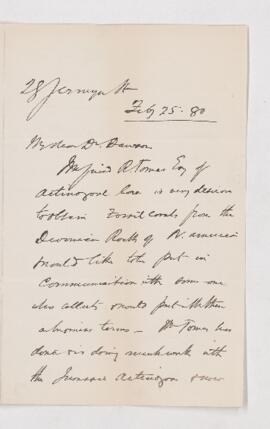 28 Jermyn St
Feby 25 - 80
My dear Dr. Dawson
My friend R. Tomes Esq of
Actinozoal is very desirous
to obtain Fossil Corals from the
Devonian Rocks of N. America
would like to be put in
Communication with some one
who collects would put
terms - Mr Tomes has
done or is doing much work with
the Jurassic Actinozoa